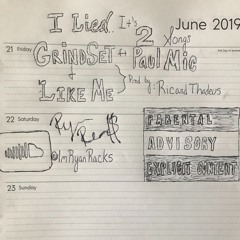 I Lied. It's 2 songs
June 2019
21 Friday
GrindSet ft Paul Mic
+
Like Me
Prod by: Ricard Thadeus
22 Saturday
@ImRyanRacks
PARENTAL
ADVISORY
EXPLICIT CONTENT
23 Sunday